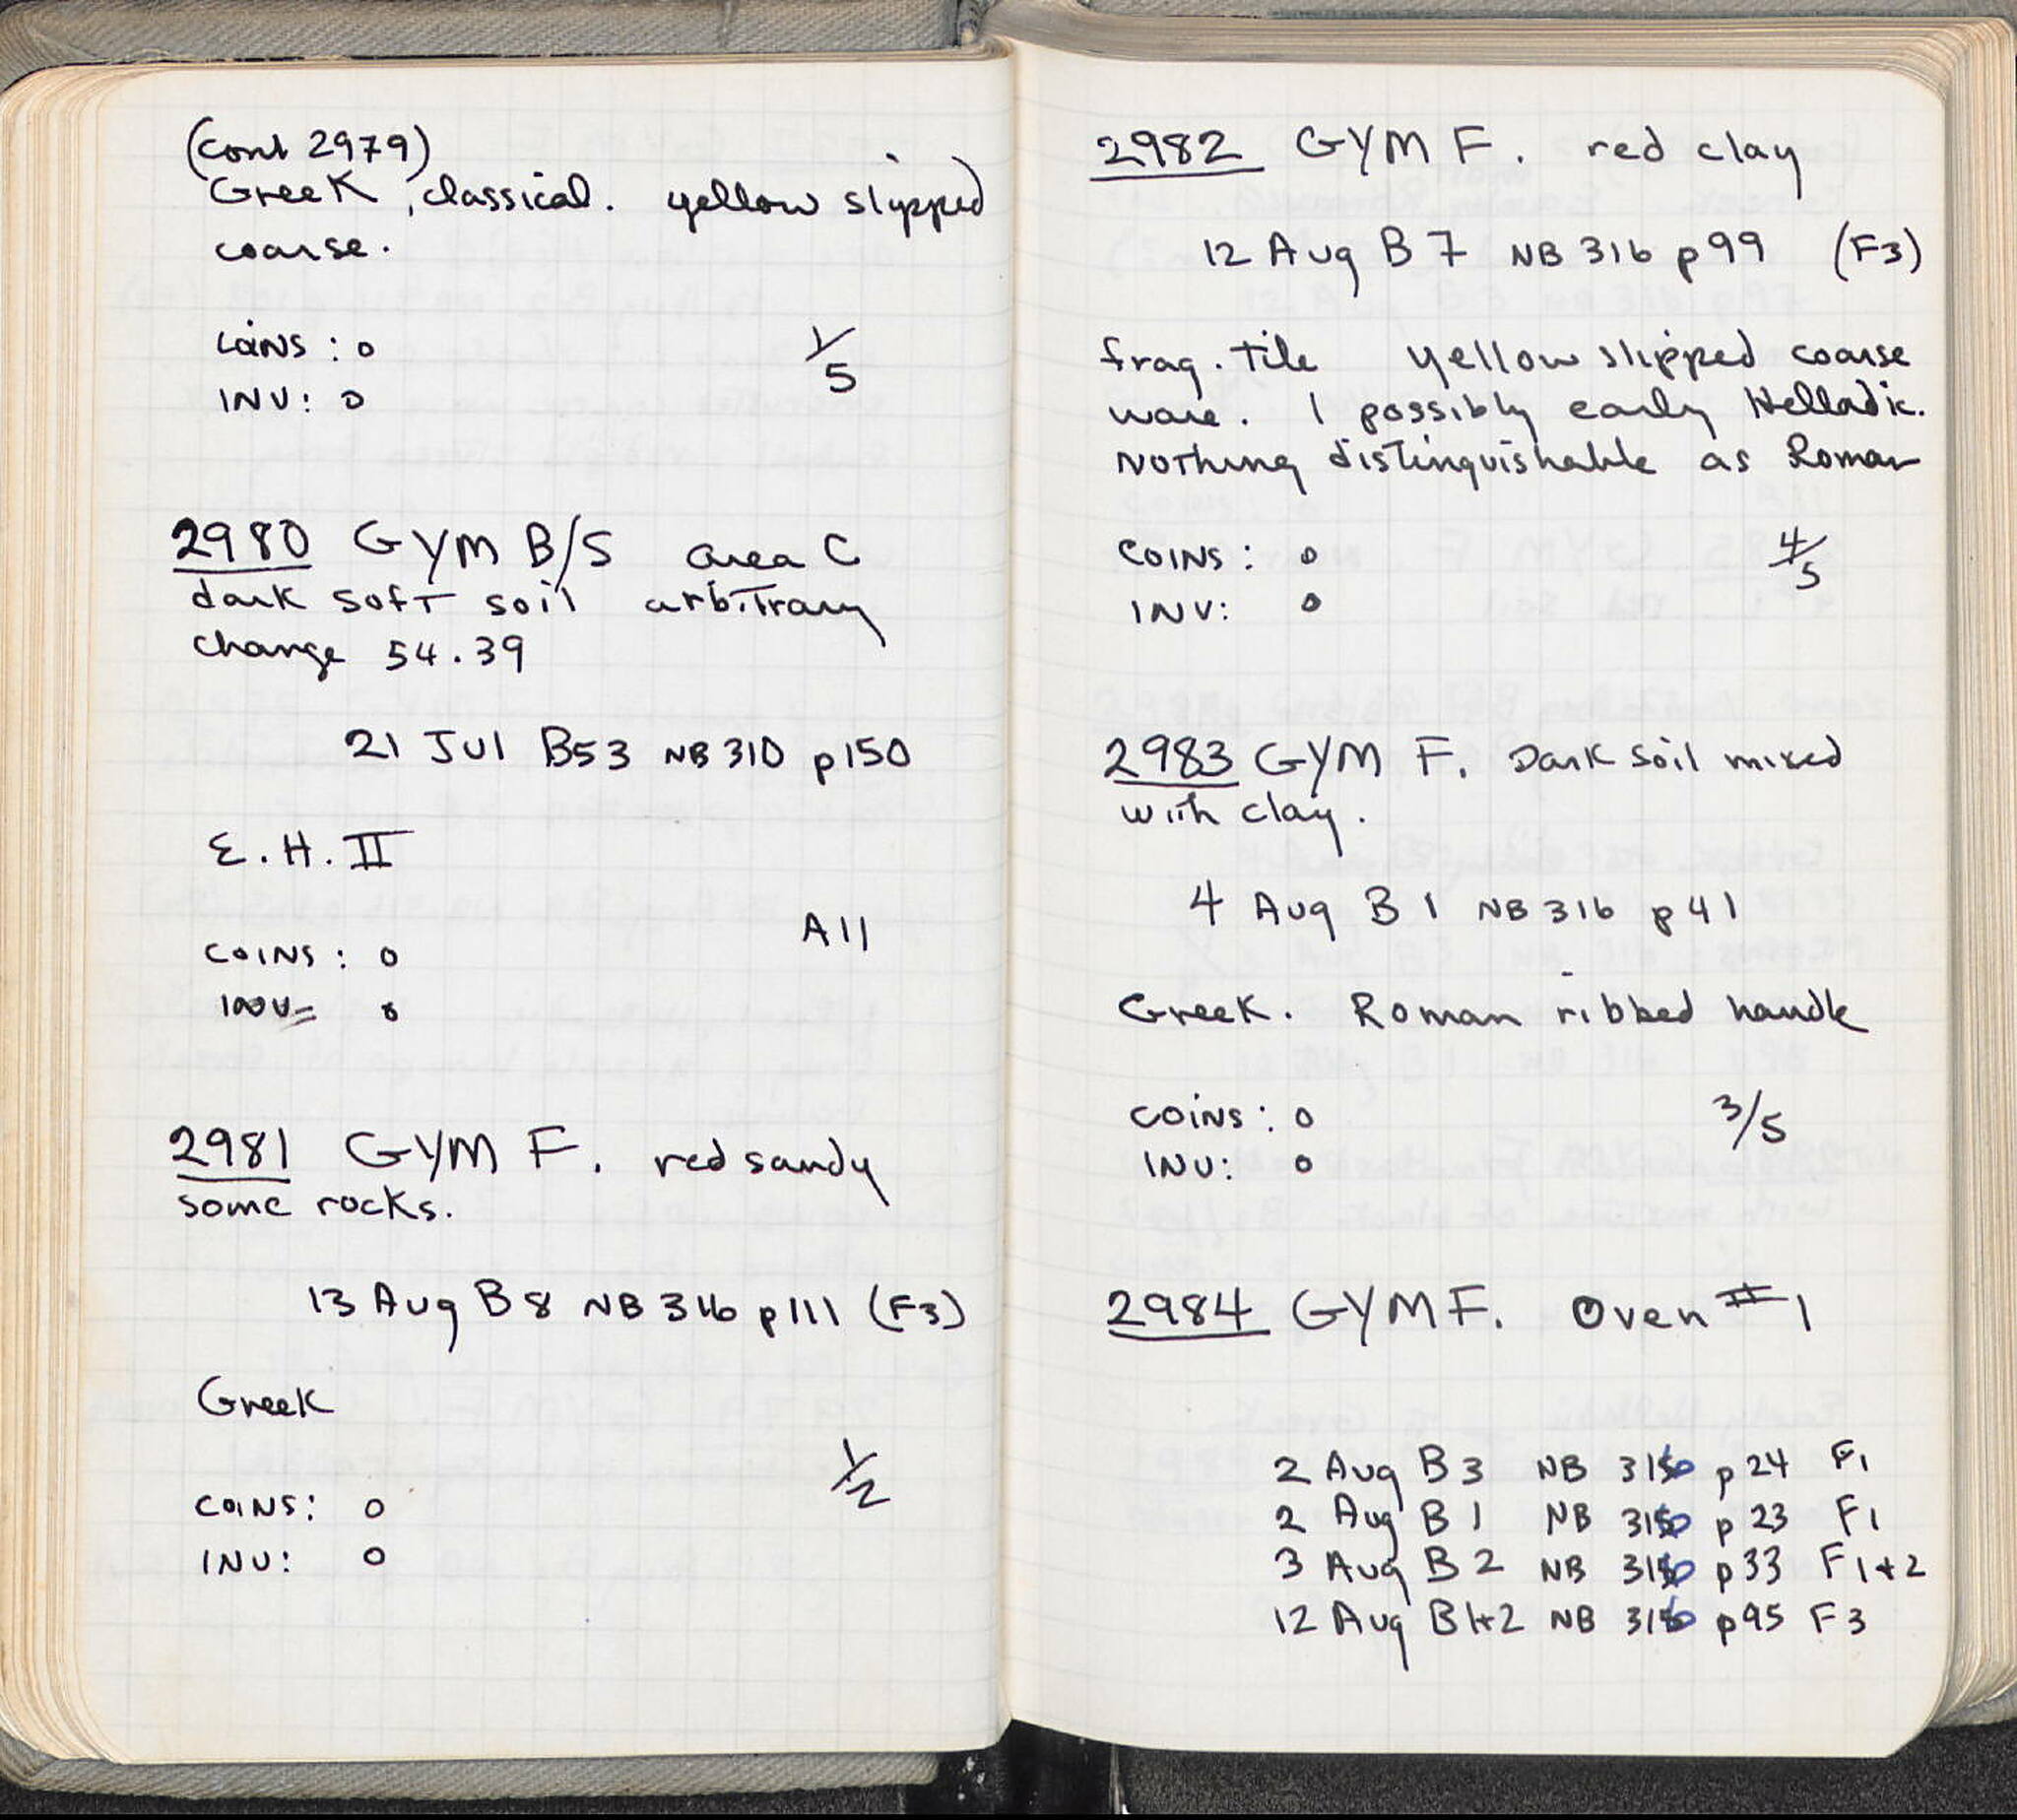 (Cont 2979)
Greek, classical. yellow slipped
coarse.
COINS : 0
1/5
INV: 0
2980 GYM B/S area C
dark soft soil arbitrary
change 54.39
21 Jul B53 NB 310 p150
E.H. II
All
COINS: 0
INV= 0
2981 GYM F. red sandy
some rocks.
13 Aug B8 NB 316 p111 (F3)
Greek
1/2
COINS: 0
INV: 0
2982 GYM F. red clay
12 Aug B7 NB 316 p99 (F3)
frag. tile yellow slipped coarse
ware. 1 possibly early Helladic.
Nothing distinguishable as Roman
COINS: 0
4/5
INV: 0
2983 GYM F. Dark soil mixed
with clay.
4 Aug B1 NB 316 p41
Greek. Roman ribbed handle
COINS: 0
3/5
INV: 0
2984 GYM F. Oven #1
2 Aug B3 NB 316 p24 F1
2 Aug B1 NB 316 p23 F1
3 Aug B2 NB 316 p33 F1+2
12 Aug B1+2 NB 316 p95 F3